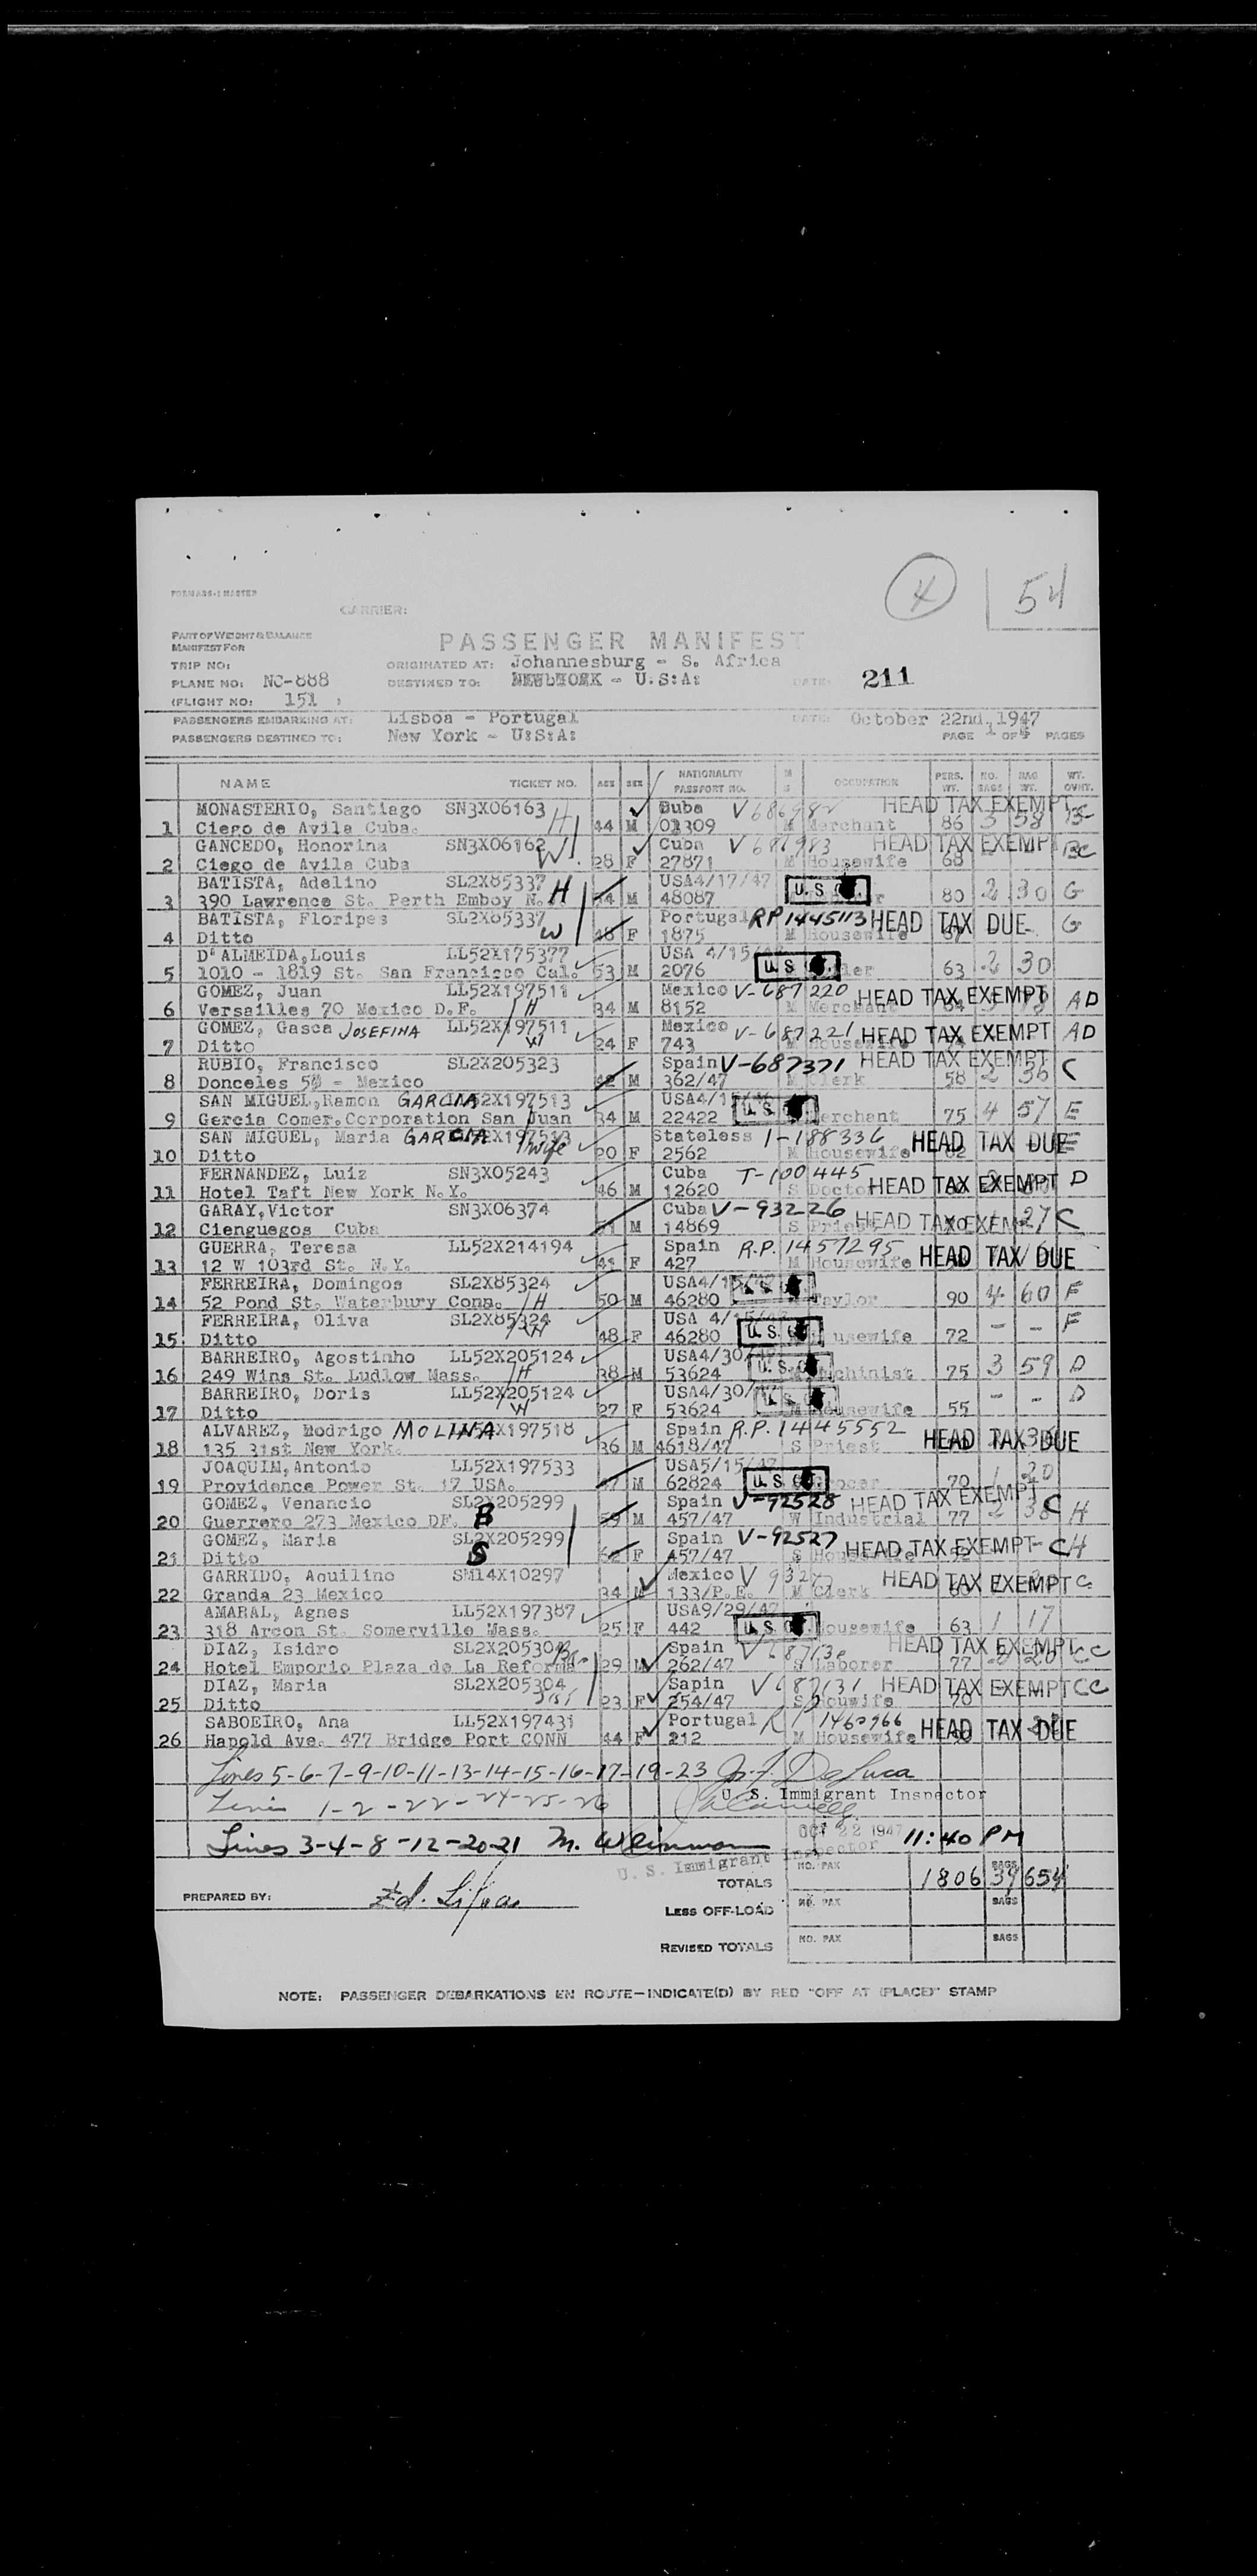 54
FORM ASS-1 MASTER
CARRIER:
PART OF WEIGHT & BALANCE
MANIFEST FOR
PASSENGER MANIFEST
TRIP NO:
ORIGINATED AT: Johannesburg - S. Africa
PLANE NO: NC-888
DESTINED TO: NEWYORK - U:S:A:
DATE: 211
(FLIGHT NO: 151 )
PASSENGERS EMBARKING AT: Lisboa - Portugal
DATE: October 22nd, 1947
PASSENGERS DESTINED TO: New York - U:S:A:
PAGE 1 OF PAGES
NAME TICKET NO. AGE SEX NATIONALITY PASSPORT NO. M S OCCUPATION PERS. WT. NO. BAGS BAG WT. WT. OVHT.
MONASTERIO, Santiago SN3X06163 H Cuba HEAD TAX EXEMPT
1 Ciego de Avila Cuba. 44 M 01309 M Merchant 86 3 58
GANCEDO, Honorina SN3X06162 W Cuba V 687983 HEAD TAX EXEMPT BC
2 Ciego de Avila Cuba 28 F 27871 M Housewife 68
BATISTA, Adelino SL2X85337 H USA4/17/47 U.S.
3 390 Lawrence St. Perth Emboy N. M 48087 80 2 30 G
BATISTA, Floripes SL2X85337 W Portugal RP 1445113 HEAD TAX DUE G
4 Ditto F 1875 M Housewife
D'ALMEIDA,Louis LL52X175377 USA 4/15/ U.S.
5 1010 - 1819 St. San Francisco Cal. 53 M 2076 63 2 30
GOMEZ, Juan LL52X197511 Mexico V-687220 HEAD TAX EXEMPT AD
6 Versailles 70 Mexico D.F. H 34 M 8152 M Merchant
GOMEZ, Gasca JOSEFINA LL52X197511 Mexico V-687221 HEAD TAX EXEMPT AD
7 Ditto W 24 F 743 Housewife
RUBIO, Francisco SL2X205323 Spain V-687371 HEAD TAX EXEMPT C
8 Donceles - Mexico M 362/47 M Clerk 58 2 36
SAN MIGUEL,Ramon GARCIA 52X197513 USA4/1 U.S.
9 Gercia Comer.Corporation San Juan 34 M 22422 Merchant 75 4 57 E
SAN MIGUEL, Maria GARCIA Stateless 1-188336 HEAD TAX DUE
10 Ditto wife 20 F 2562 M Housewife
FERNANDEZ, Luiz SN3X05243 Cuba T-100445 HEAD TAX EXEMPT D
11 Hotel Taft New York N.Y. 46 M 12620 S Doctor
GARAY,Victor SN3X06374 Cuba V-93226 HEAD TAX EXEMPT C
12 Cienguegos Cuba M 14869 S Priest 27
GUERRA, Teresa LL52X214194 Spain R.P. 1457295 HEAD TAX DUE
13 12 W 103rd St. N.Y. 41 F 427 M Housewife
FERREIRA, Domingos SL2X85324 USA4/15 U.S.
14 52 Pond St. Waterbury Conn. H 50 M 46280 Taylor 90 4 60 F
FERREIRA, Oliva SL2X85324 USA 4/15/47 U.S. F
15 Ditto W 48 F 46280 usewife 72 - -
BARREIRO, Agostinho LL52X205124 USA4/30 U.S.
16 249 Wins St. Ludlow Mass. H 38 M 53624 Machinist 75 3 59 D
BARREIRO, Doris LL52X205124 USA4/30/ U.S. D
17 Ditto W 27 F 53624 M Housewife 55 - -
ALVAREZ, Rodrigo MOLINA X197518 Spain R.P. 1445552 HEAD TAX DUE
18 135 31st New York. 36 M 4618/47 S Priest
JOAQUIM,Antonio LL52X197533 USA5/15/47 U.S.
19 Providence Power St. 17 USA. M 62824 Grocer 70 1 20
GOMEZ, Venancio SL2X205299 Spain V-92528 HEAD TAX EXEMPT C H
20 Guerrero 273 Mexico DF. B 59 M 457/47 W Industrial 77 2 38
GOMEZ, Maria SL2X205299 Spain V-92527 HEAD TAX EXEMPT - CH
21 Ditto S F 457/47 S Housewife
GARRIDO, Aquilino SM14X10297 Mexico HEAD TAX EXEMPT C
22 Granda 23 Mexico 34 M 133/P.E. M Clerk
AMARAL, Agnes LL52X197387 USA9/29/47 U.S.
23 318 Arcon St. Somerville Mass. 25 F 442 Housewife 63 1 17
DIAZ, Isidro SL2X205304 Bro Spain HEAD TAX EXEMPT CC
24 Hotel Emporio Plaza de La Reforma 29 M 262/47 S Laborer 77 20
DIAZ, Maria SL2X205304 Sis Sapin V 687131 HEAD TAX EXEMPT CC
25 Ditto 23 F 254/47 S Houwife 70
SABOEIRO, Ana LL52X197431 Portugal RP 1460966 HEAD TAX DUE
26 Hapold Ave. 477 Bridge Port CONN 44 F 212 M Housewife
Lines 5-6-7-9-10-11-13-14-15-16-17-19-23 Jos. F. DeLuca
U. S. Immigrant Inspector
Lines 1-2-22-24-25-26
Lines 3-4-8-12-20-21 M. Weinman
OCT 22 1947 11:40 PM
U. S. Immigrant Inspector
TOTALS NO. PAX 1806 BAGS 39 654
PREPARED BY: Ed. Silva
LESS OFF-LOAD NO. PAX BAGS
REVISED TOTALS NO. PAX BAGS
NOTE: PASSENGER DEBARKATIONS EN ROUTE—INDICATE(D) BY RED "OFF AT (PLACE)" STAMP